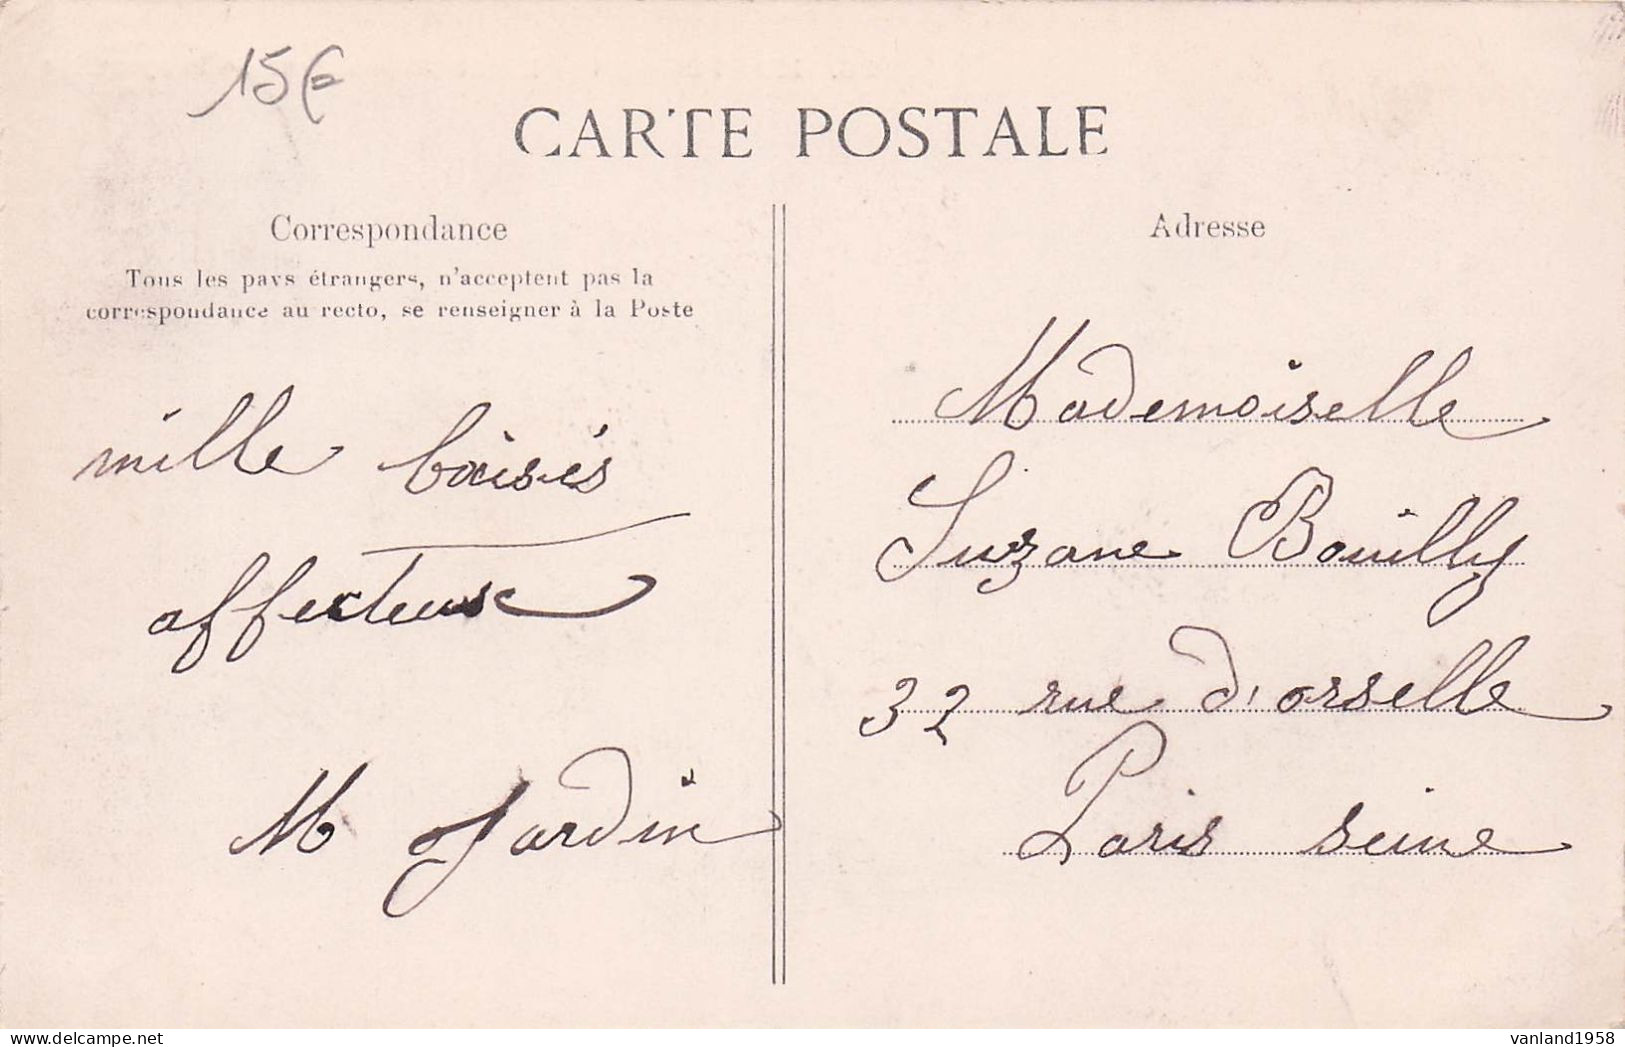 15€
CARTE POSTALE
Correspondance
Tous les pays étrangers, n'acceptent pas la
correspondance au recto, se renseigner à la Poste
mille baisés
affecteux
M Jardin
Adresse
Mademoiselle
Suzane Bouilly
32 rue d'orselle
Paris seine
vanland1958